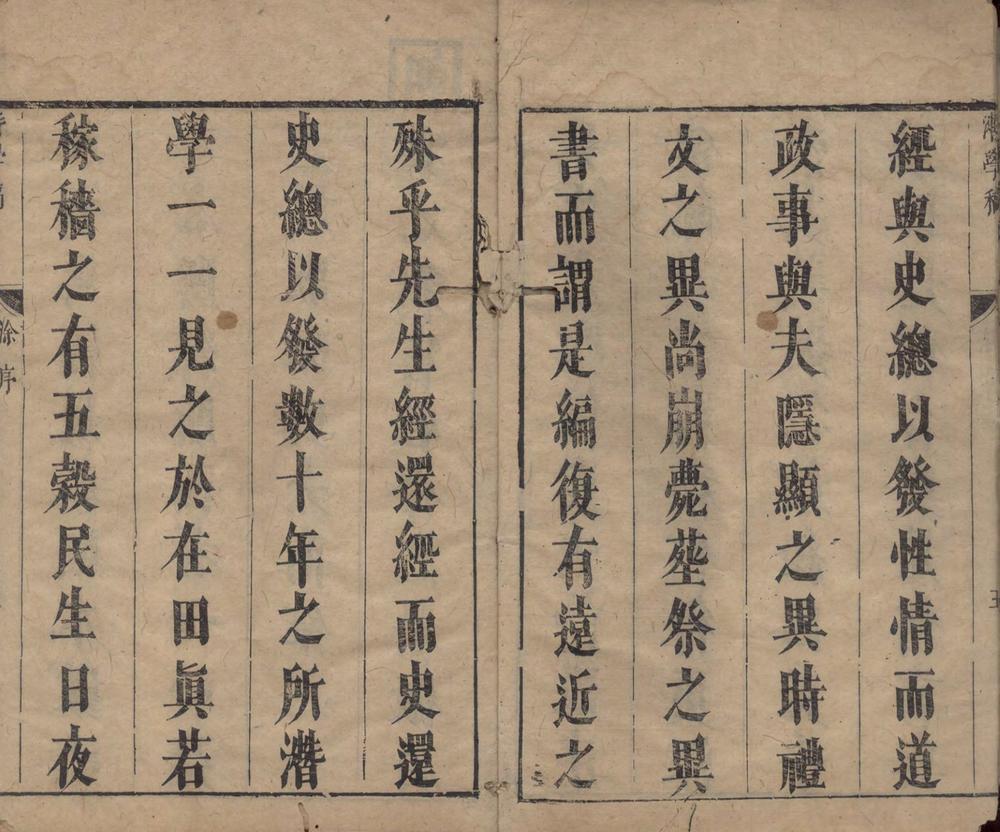 經與史總以發性情而道
政事與夫隱顯之異時禮
文之異尚崩薨塟祭之異
書而謂是編復有遠近之
殊乎先生經還經而史還
史總以發數十年之所潛
學一一見之於在田眞若
稼穡之有五穀民生日夜
序